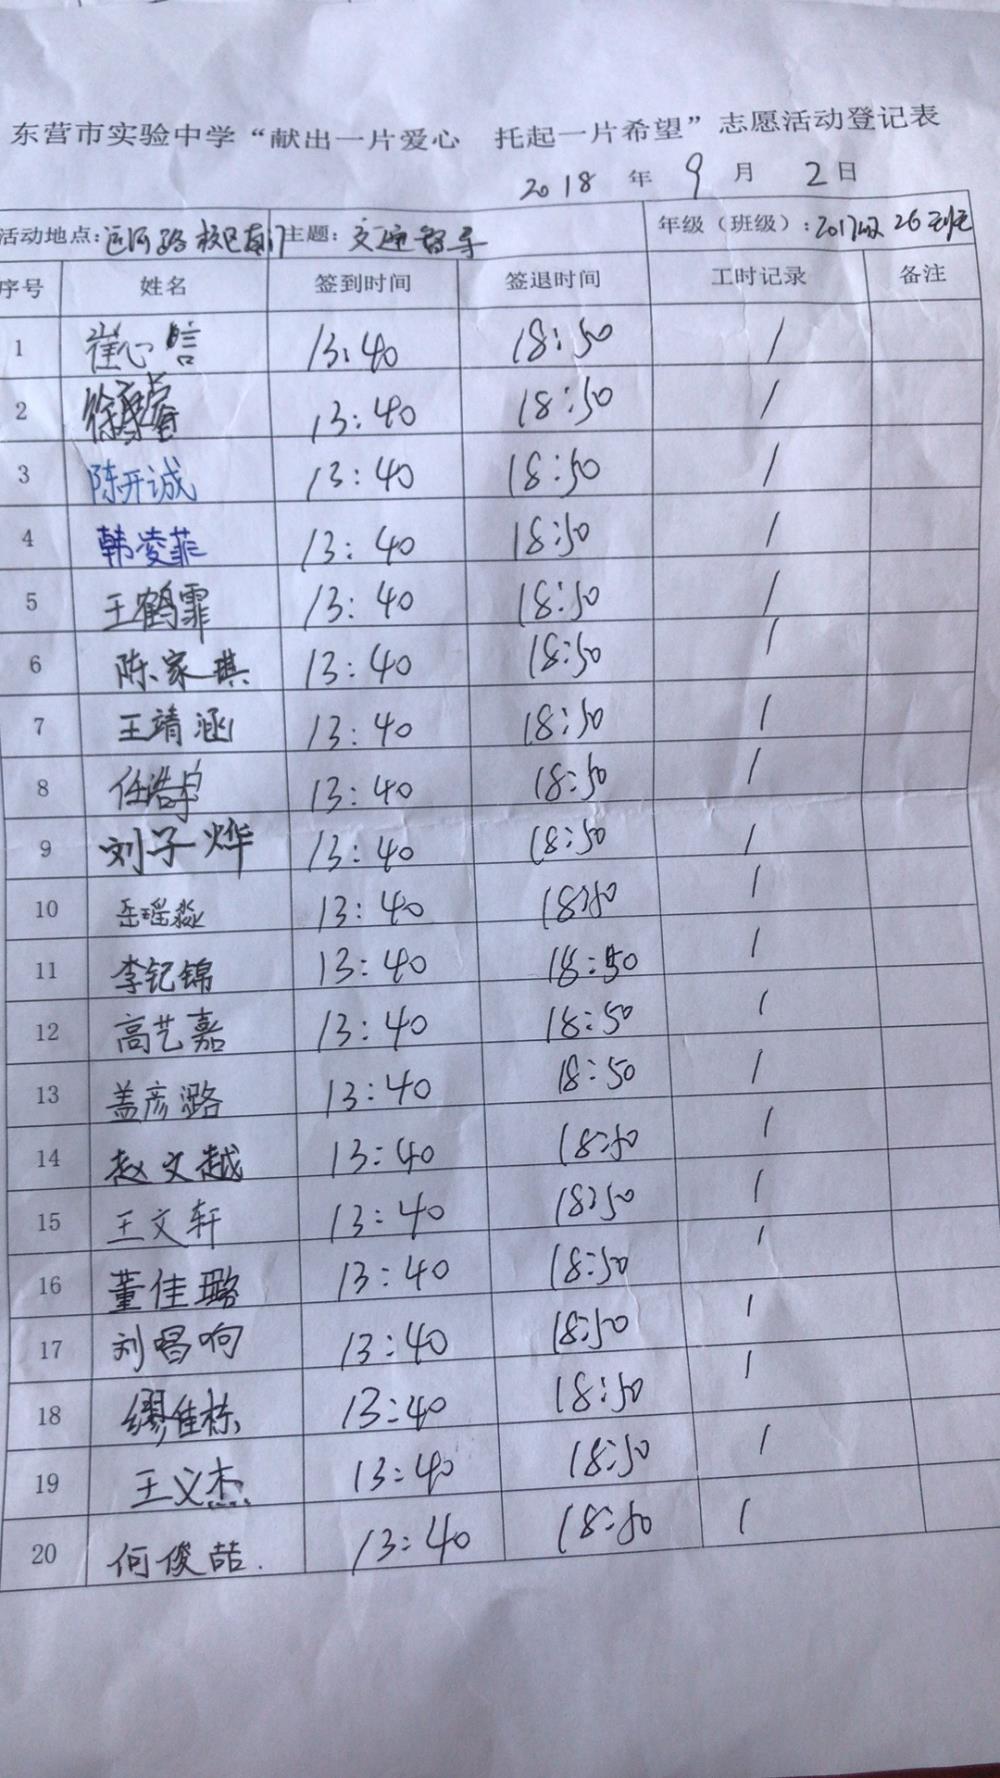 东营市实验中学“献出一片爱心 托起一片希望”志愿活动登记表
2018 年 9 月 2 日
活动地点：运河路校区南门 主题：交通督导 年级（班级）：2017级 26班
序号 姓名 签到时间 签退时间 工时记录 备注
1 崔心 13:40 18:50 1
2 徐 13:40 18:50 1
3 陈开诚 13:40 18:50 1
4 韩凌菲 13:40 18:50 1
5 王鹤霏 13:40 18:50 1
6 陈家琪 13:40 18:50 1
7 王靖涵 13:40 18:50 1
8 任浩宇 13:40 18:50 1
9 刘子烨 13:40 18:50 1
10 岳瑶淼 13:40 18:50 1
11 李钇锦 13:40 18:50 1
12 高艺嘉 13:40 18:50 1
13 盖彦潞 13:40 18:50 1
14 赵文越 13:40 18:50 1
15 王文轩 13:40 18:50 1
16 董佳璐 13:40 18:50 1
17 刘昌响 13:40 18:50 1
18 缪佳栋 13:40 18:50 1
19 王义杰 13:40 18:50 1
20 何俊喆 13:40 18:50 1